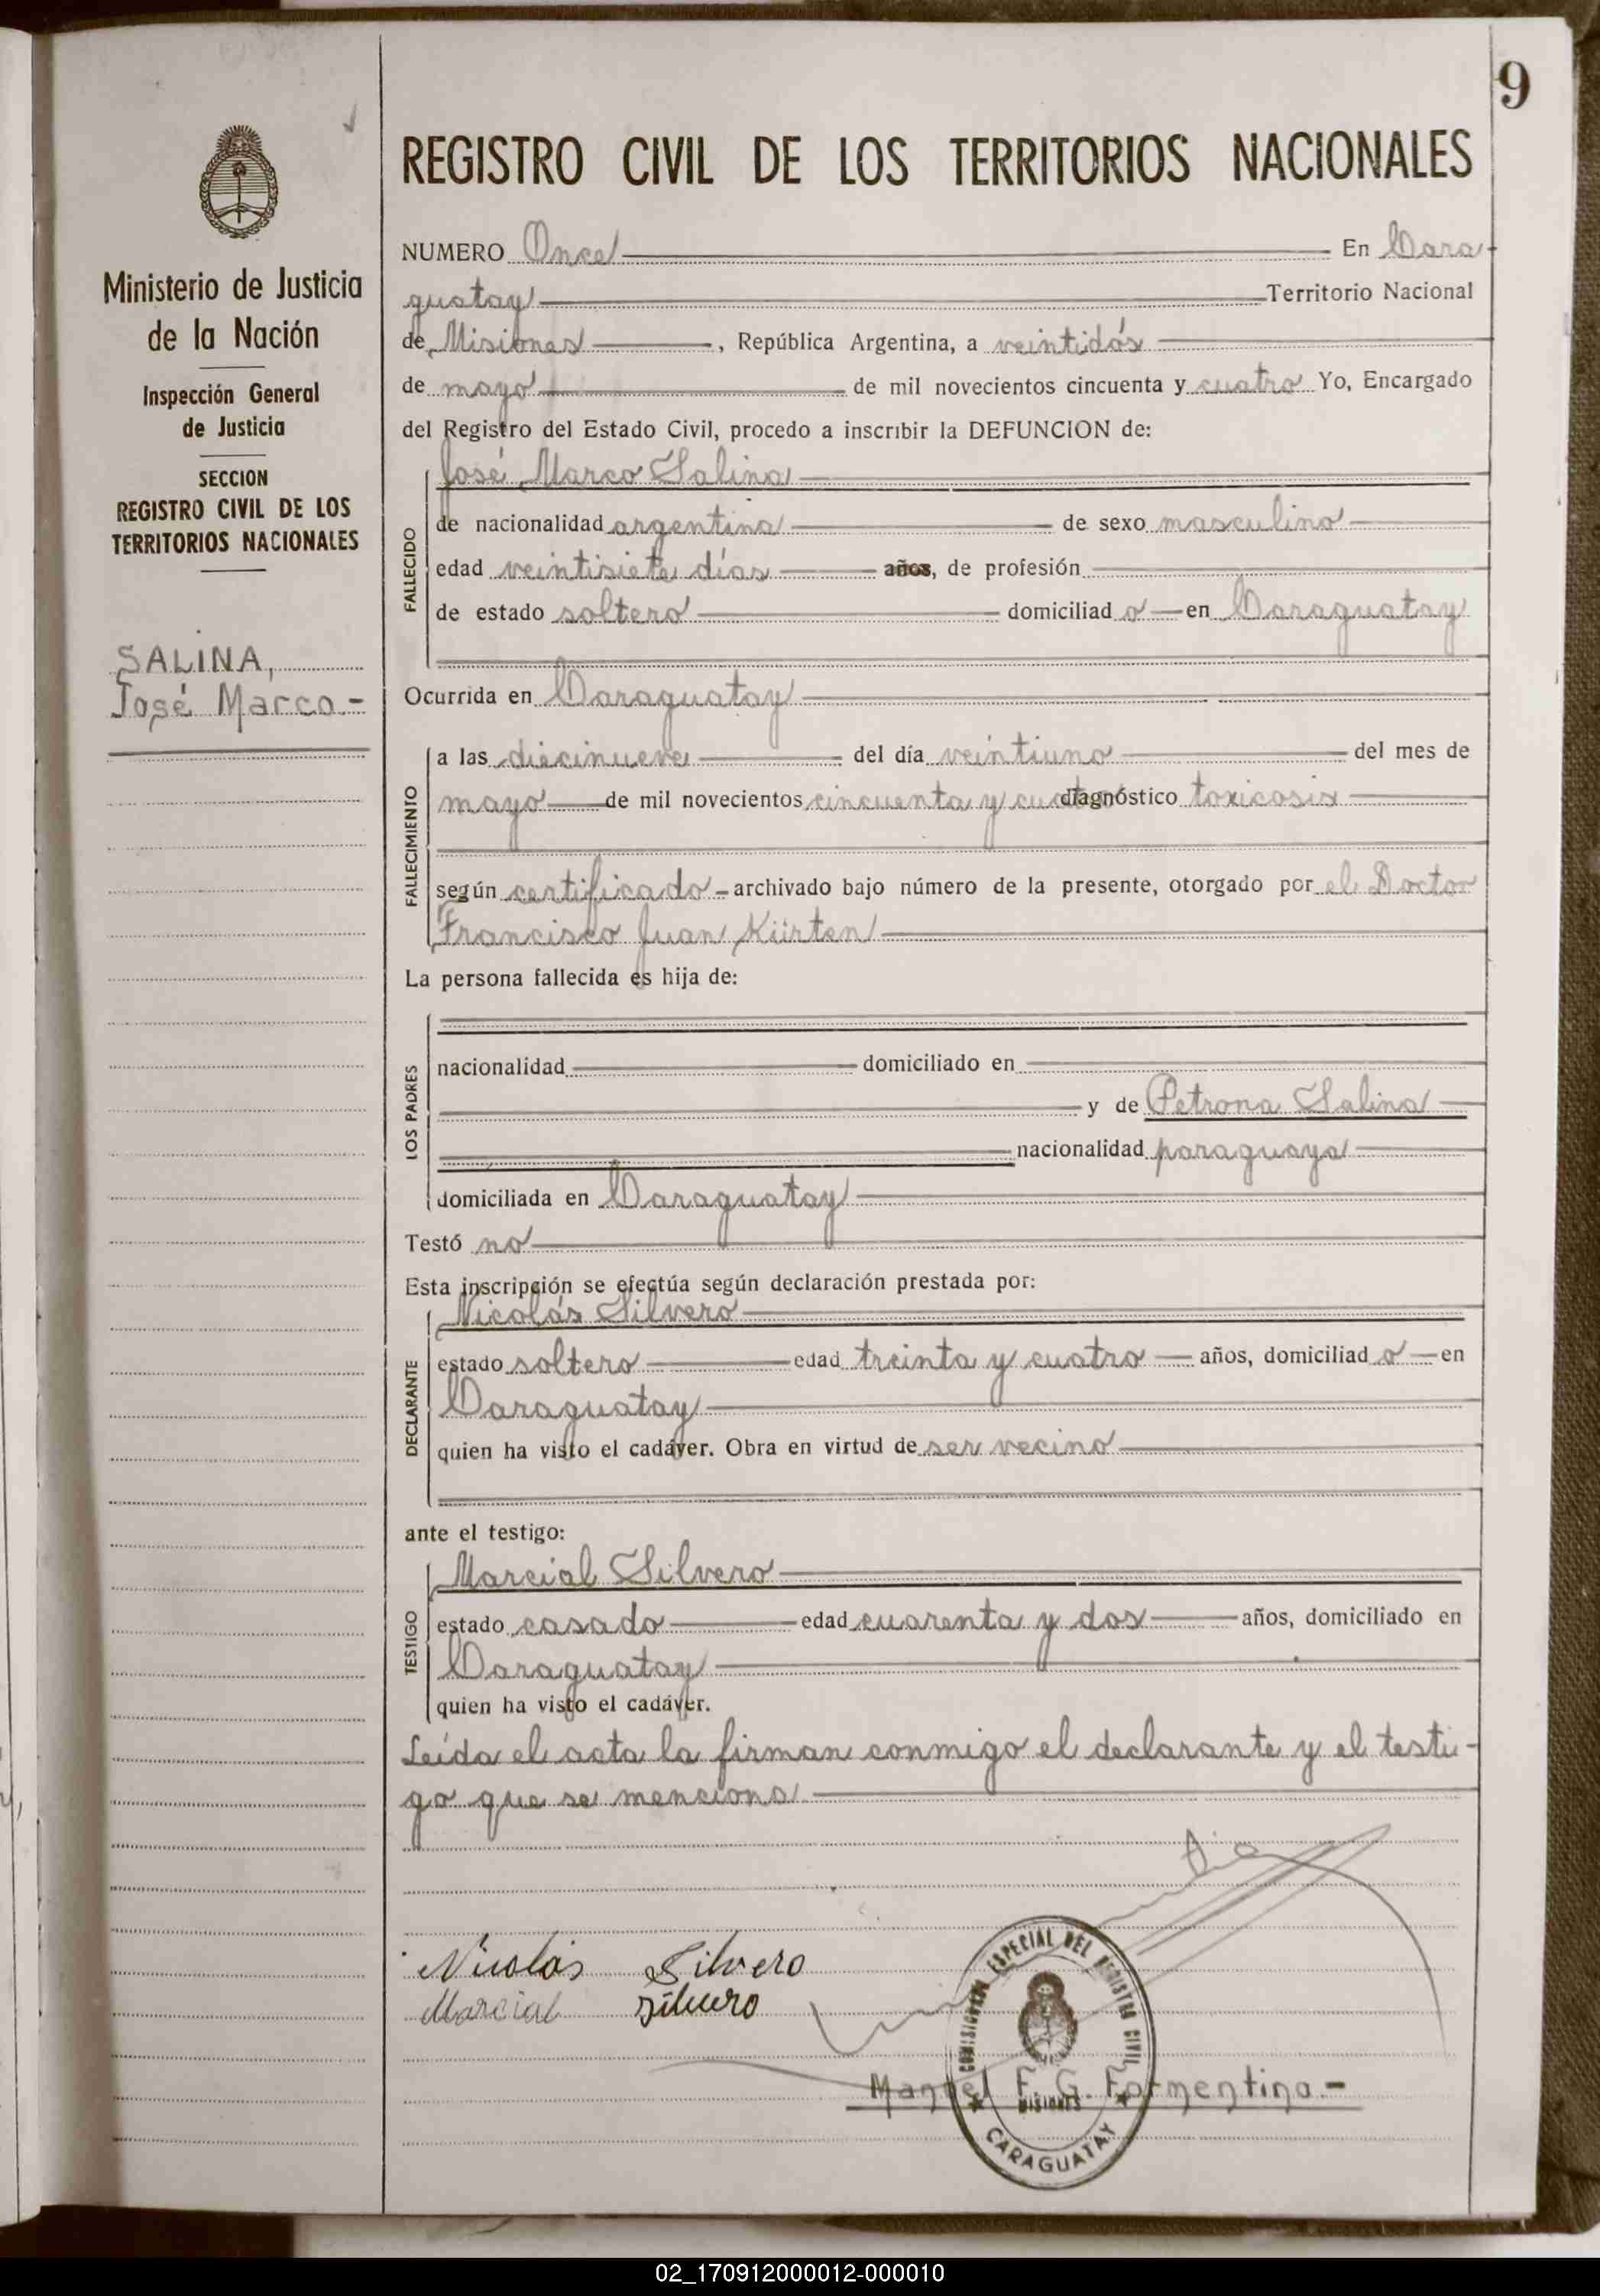 9
REGISTRO CIVIL DE LOS TERRITORIOS NACIONALES
Ministerio de Justicia
de la Nación
Inspección General
de Justicia
SECCION
REGISTRO CIVIL DE LOS
TERRITORIOS NACIONALES
SALINA,
José Marco.-
NUMERO Once En Cara-
guatay Territorio Nacional
de Misiones, República Argentina, a veintidós
de mayo de mil novecientos cincuenta y cuatro Yo, Encargado
del Registro del Estado Civil, procedo a inscribir la DEFUNCION de:
FALLECIDO
José Marco Salina
de nacionalidad argentina de sexo masculino
edad veintisiete días años, de profesión
de estado soltero domiciliad o en Caraguatay
Ocurrida en Caraguatay
FALLECIMIENTO
a las diecinueve del día veintiuno del mes de
mayo de mil novecientos cincuenta y cuatro diagnóstico toxicosis
según certificado archivado bajo número de la presente, otorgado por el Doctor
Francisco Juan Kürten
La persona fallecida es hija de:
LOS PADRES
nacionalidad domiciliado en
y de Petrona Salina
nacionalidad paraguaya
domiciliada en Caraguatay
Testó no
Esta inscripción se efectúa según declaración prestada por:
DECLARANTE
Nicolás Silvero
estado soltero edad treinta y cuatro años, domiciliad o en
Caraguatay
quien ha visto el cadáver. Obra en virtud de ser vecino
ante el testigo:
TESTIGO
Marcial Silvero
estado casado edad cuarenta y dos años, domiciliado en
Caraguatay
quien ha visto el cadáver.
Leída el acta la firman conmigo el declarante y el testi-
go que se menciona
Nicolás Silvero
Marcial Silvero
COMISIONADO ESPECIAL DEL REGISTRO CIVIL
MISIONES
CARAGUATAY
Manuel F. G. Formentino.-
02_170912000012-000010